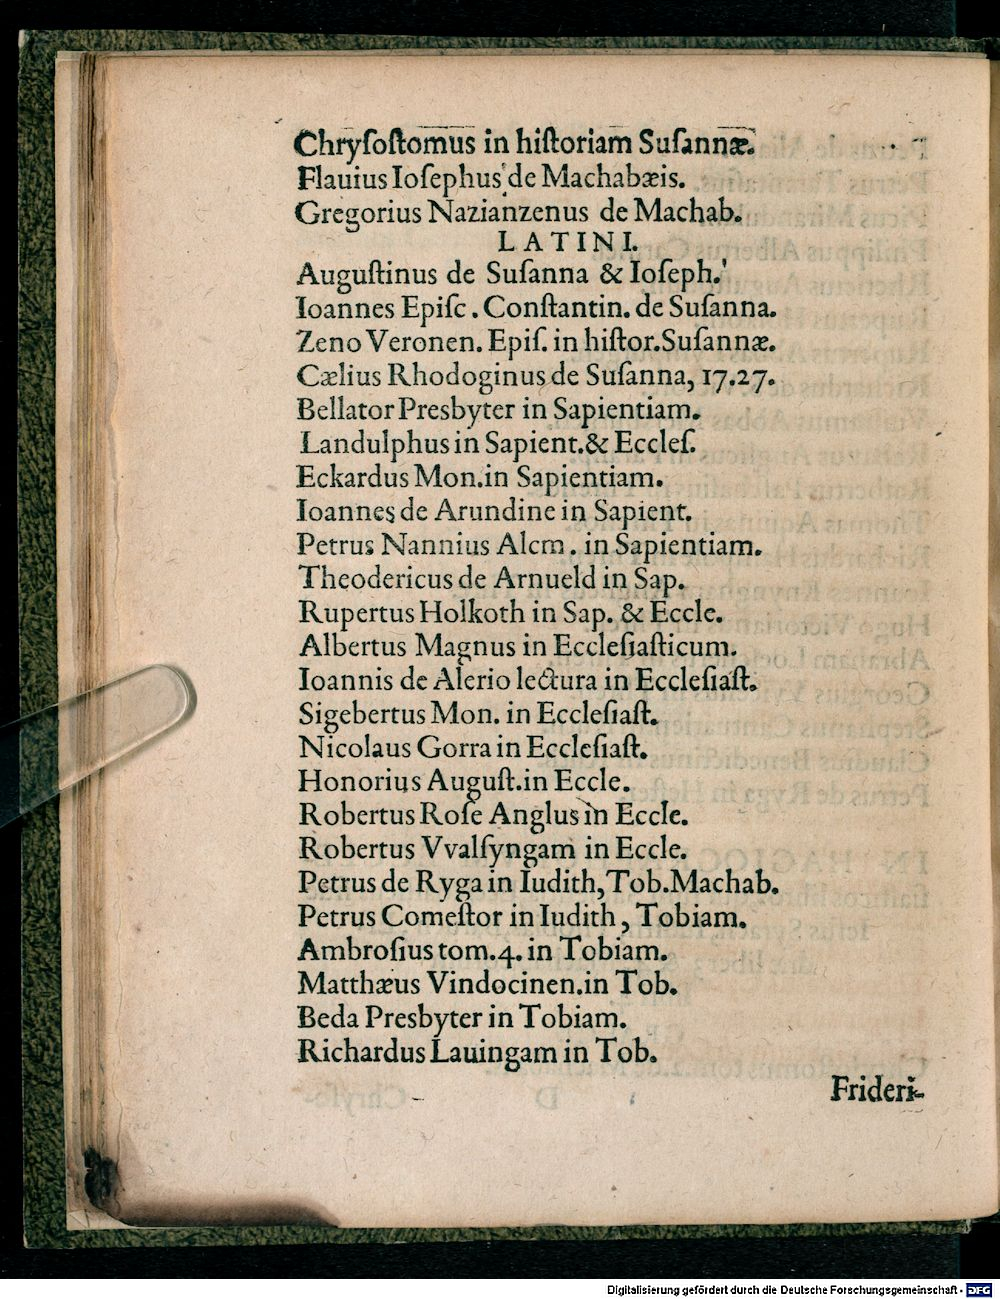 Chryſoſtomus in hiſtoriam Suſannæ.
Flauius Ioſephus de Machabæis.
Gregorius Nazianzenus de Machab.
LATINI.
Auguſtinus de Suſanna & Ioſeph.
Ioannes Epiſc. Conſtantin. de Suſanna.
Zeno Veronen. Epiſ. in hiſtor. Suſannæ.
Cælius Rhodoginus de Suſanna, 17.27.
Bellator Presbyter in Sapientiam.
Landulphus in Sapient. & Eccleſ.
Eckardus Mon. in Sapientiam.
Ioannes de Arundine in Sapient.
Petrus Nannius Alcm. in Sapientiam.
Theodericus de Arnueld in Sap.
Rupertus Holkoth in Sap. & Eccle.
Albertus Magnus in Eccleſiaſticum.
Ioannis de Alerio lectura in Eccleſiaſt.
Sigebertus Mon. in Eccleſiaſt.
Nicolaus Gorra in Eccleſiaſt.
Honorius Auguſt. in Eccle.
Robertus Roſe Anglus in Eccle.
Robertus Vvalſyngam in Eccle.
Petrus de Ryga in Iudith, Tob. Machab.
Petrus Comeſtor in Iudith, Tobiam.
Ambroſius tom. 4. in Tobiam.
Matthæus Vindocinen. in Tob.
Beda Presbyter in Tobiam.
Richardus Lauingam in Tob.
Frideri-
Digitalisierung gefördert durch die Deutsche Forschungsgemeinschaft - DFG